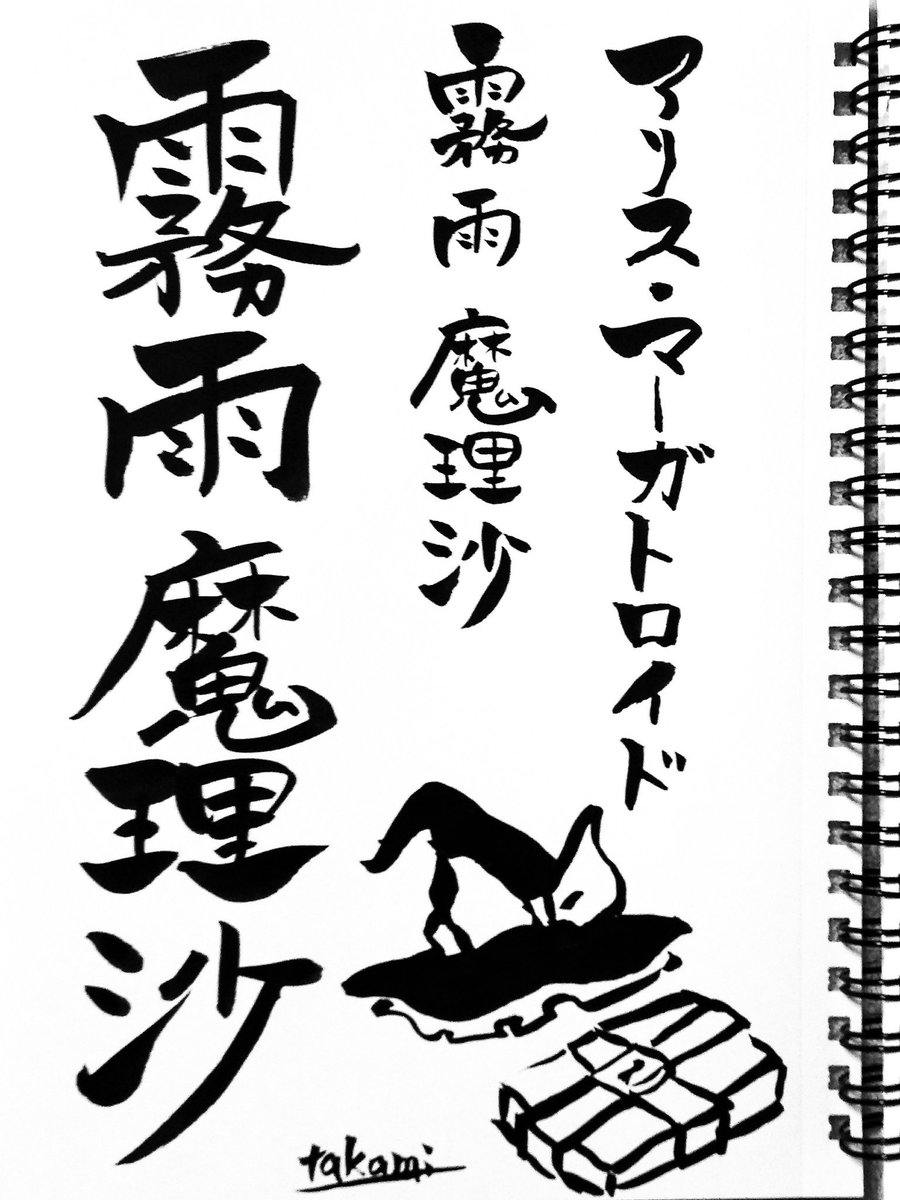 アリス・マーガトロイド
霧雨魔理沙
霧雨魔理沙
takami